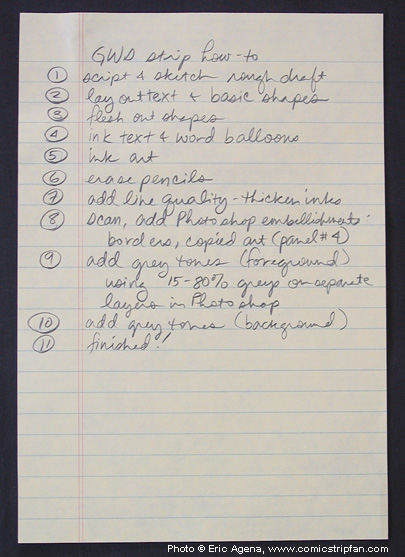 GWS strip how-to
1 script & sketch rough draft
2 lay out text & basic shapes
3 flesh out shapes
4 ink text & word balloons
5 ink art
6 erase pencils
7 add line quality - thicken inks
8 scan, add Photoshop embellishments -
borders, copied art (panel #4)
9 add grey tones (foreground)
using 15-80% greys on separate
layers in Photoshop
10 add grey tones (background)
11 finished!
Photo © Eric Agena, www.comicstripfan.com